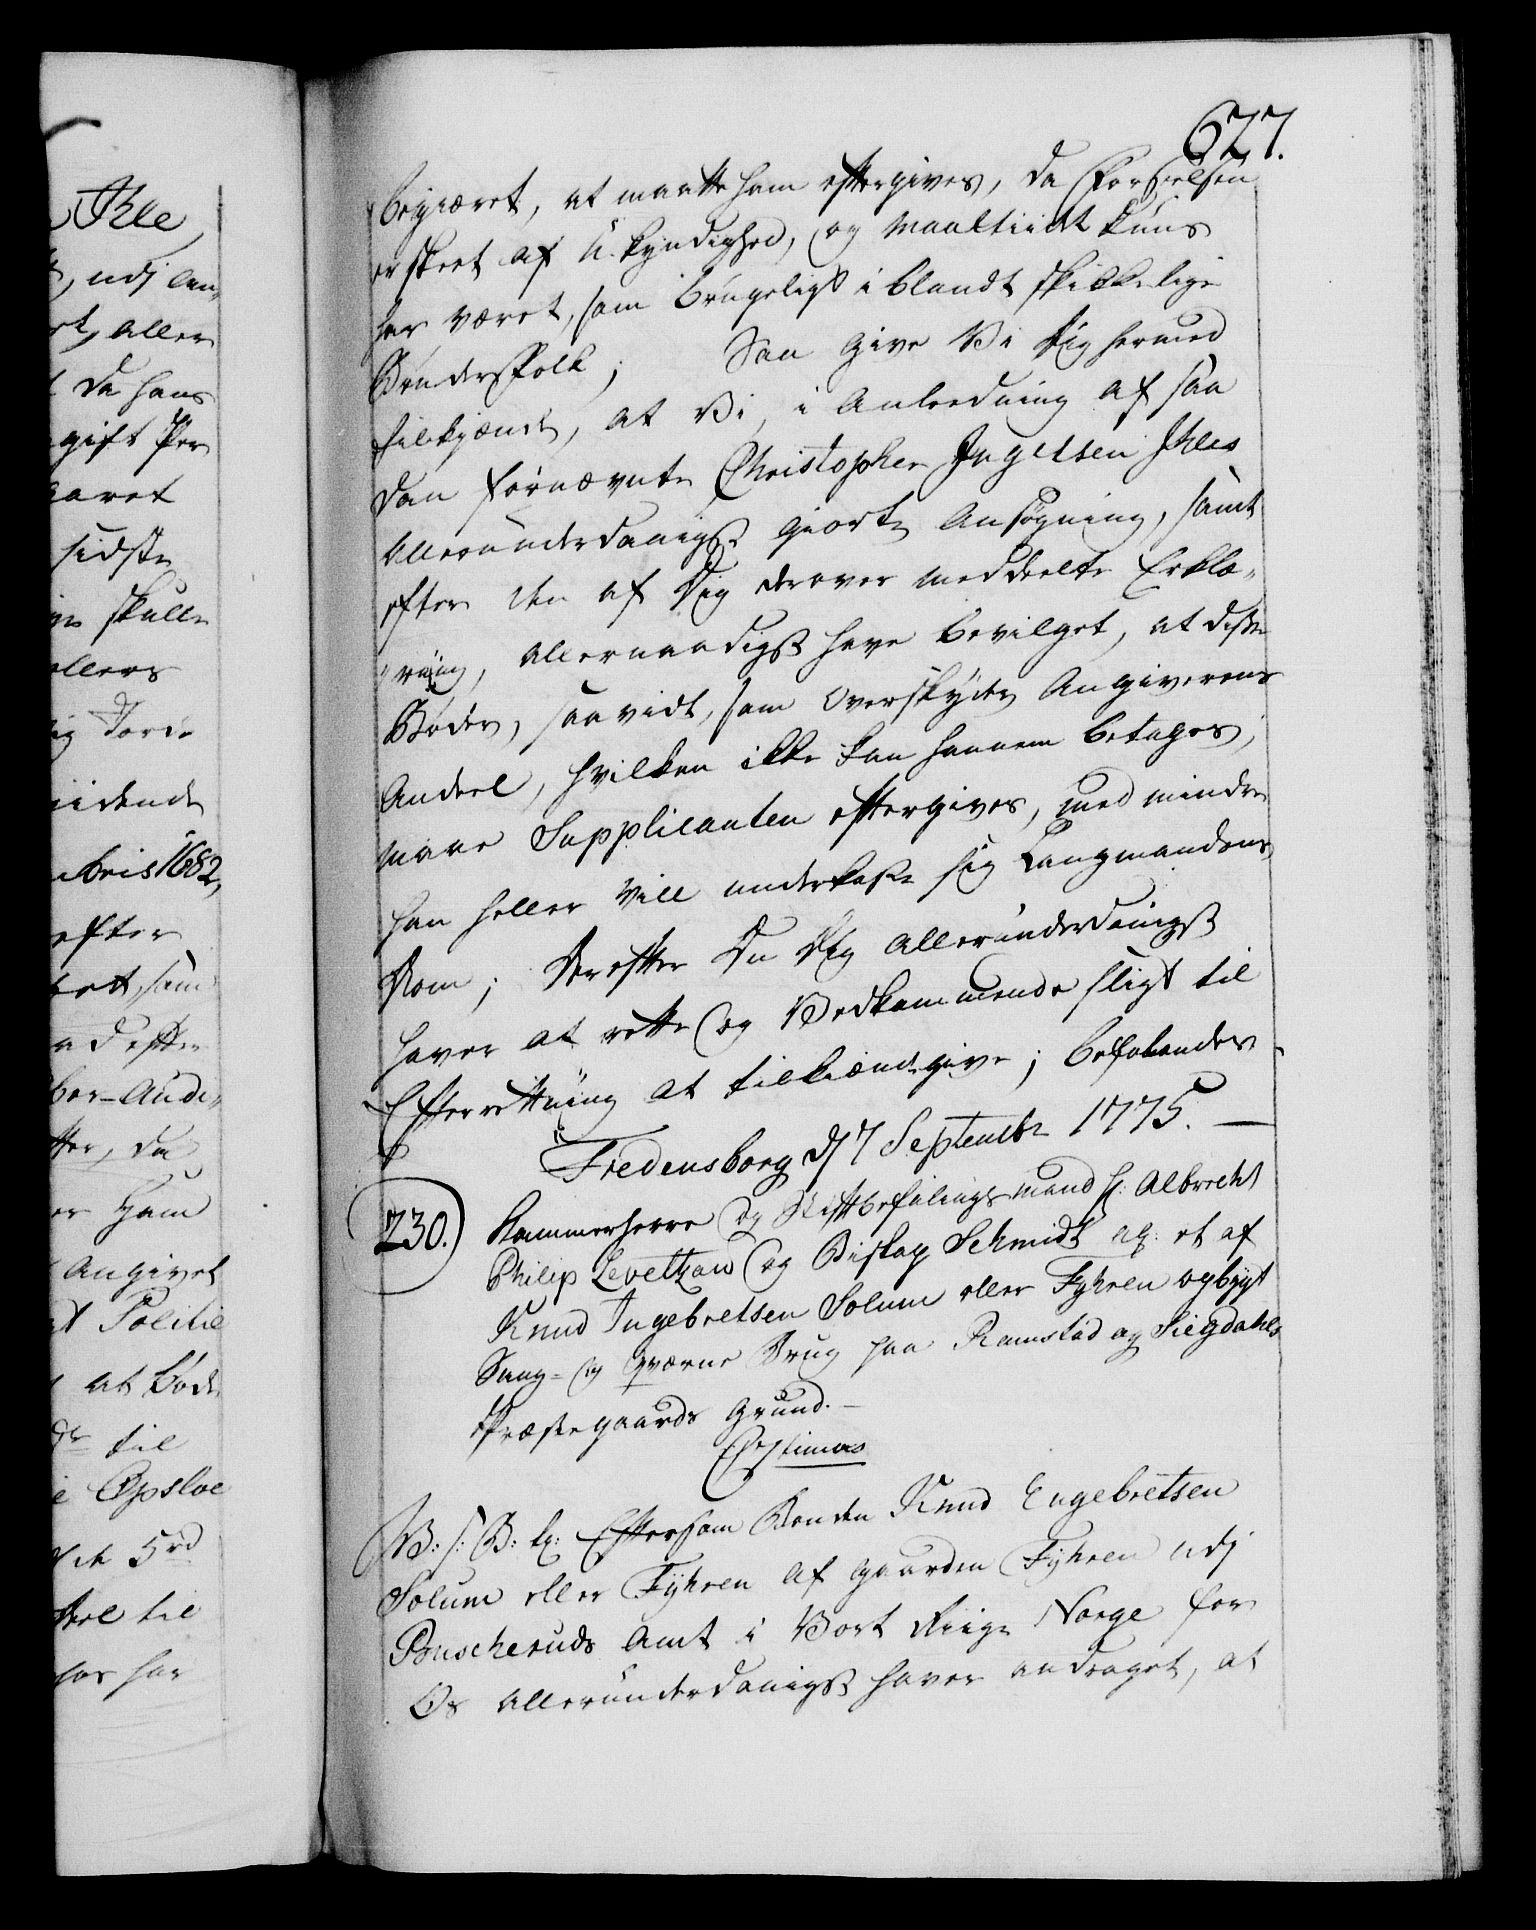 677.
begiæret, at maatte ham eftergives, da Forseelsen
er skeet af U-kyndighed, og Maaltiidet kuns
har været, som brugeligt iblandt skikkelige
BønderFolk; Saa give Vi Dig hermed
tilkjænde, at Vi, i Anledning af saa
dan fornævnte Christopher Ingelsen Ihles
allerunderdanigst giorte Ansøgning, samt
efter den af Dig derover meddeelte Erklæ-
ring, allernaadigst have bevilget, at disse
Bøder, saavidt, som overskyder Angiverens
Andeel, hvilken ikke kan hannem betages,
maae Supplicanten eftergives, med mindre
han heller vill underkaste sig Laugmandens
Dom; Derefter Du Dig allerunderdanigst
haver at rette og Vedkommende sligt til
Efterretning at tilkiændegive; befalendes
Fredensborg d 7 Septembr 1775.
230.) Kammerherre og Stiftbefalingsmand H: Albrecht
Philip Levetzau og Biskop Schmidt et af
Knud Ingebretsen Solum eller Fyhren opbygt
Saug- og Qværne Brug paa Ramstad og Siegdahls
Præstegaards Grund.
V: G: B: Eftersom Bonden Knud Engebretsen
Solum eller Fyhren af Gaarden Fyhren udj
Buscheruds Amt i Vort Riige Norge for
Os allerunderdanigst haver andraget, at
Ihle
udj
aller
da hans
sidste
skulle
ellers
bris 1682,
efter
som
Ober-Audi-
da
Ham
Angivet
Politie
at bøde
til
Opsloe
5rd
til
har